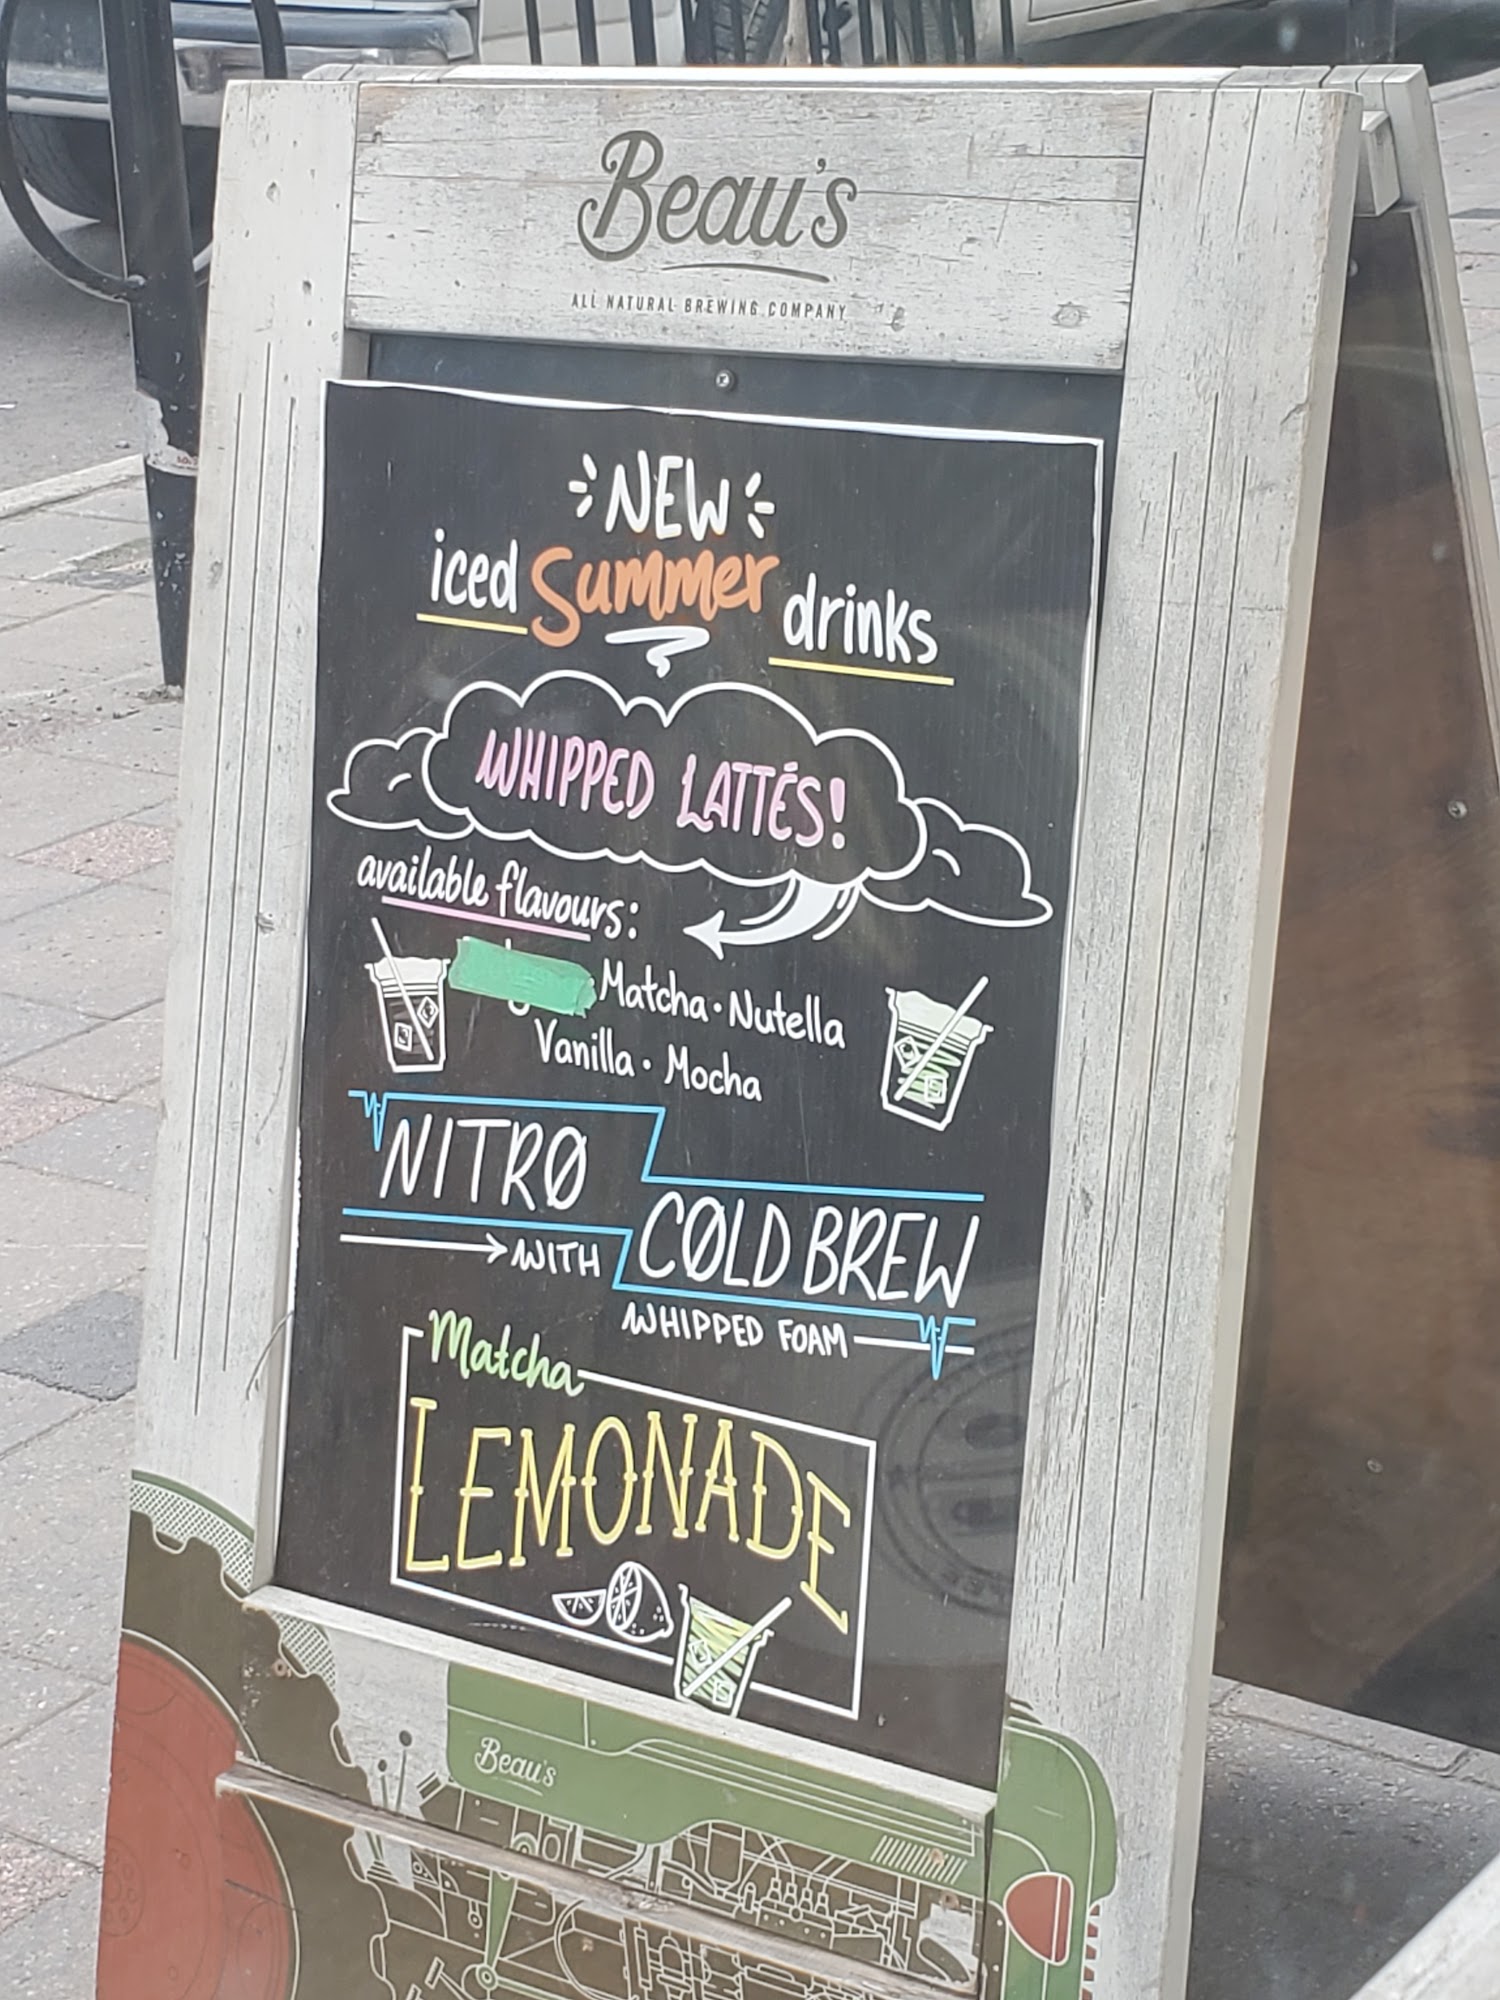 Beau's
ALL NATURAL BREWING COMPANY
NEW
iced Summer drinks
WHIPPED LATTÉS!
available flavours:
Matcha · Nutella
Vanilla · Mocha
NITRO
COLD BREW
WITH
WHIPPED FOAM
Matcha
LEMONADE
Beau's